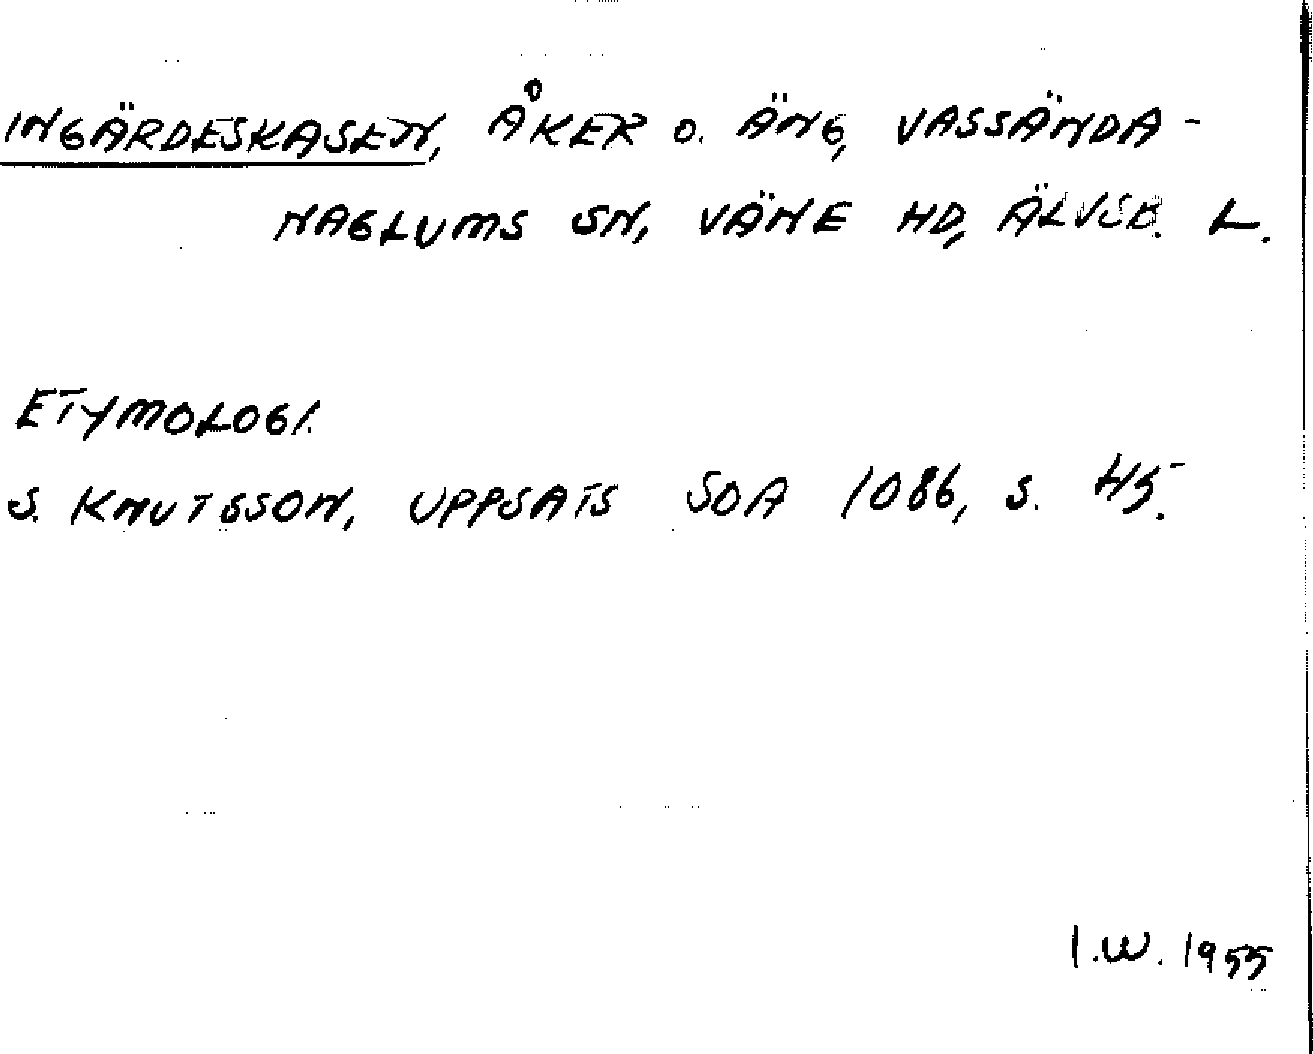 INGÄRDESKASEN, ÅKER o. ÄNG, VASSÄNDA-
NAGLUMS SN, VÄNE HD, ÄLVSB. L.
ETYMOLOGI.
S. KNUTSSON, UPPSATS SOA 1086, S. 45.
I.W. 1955